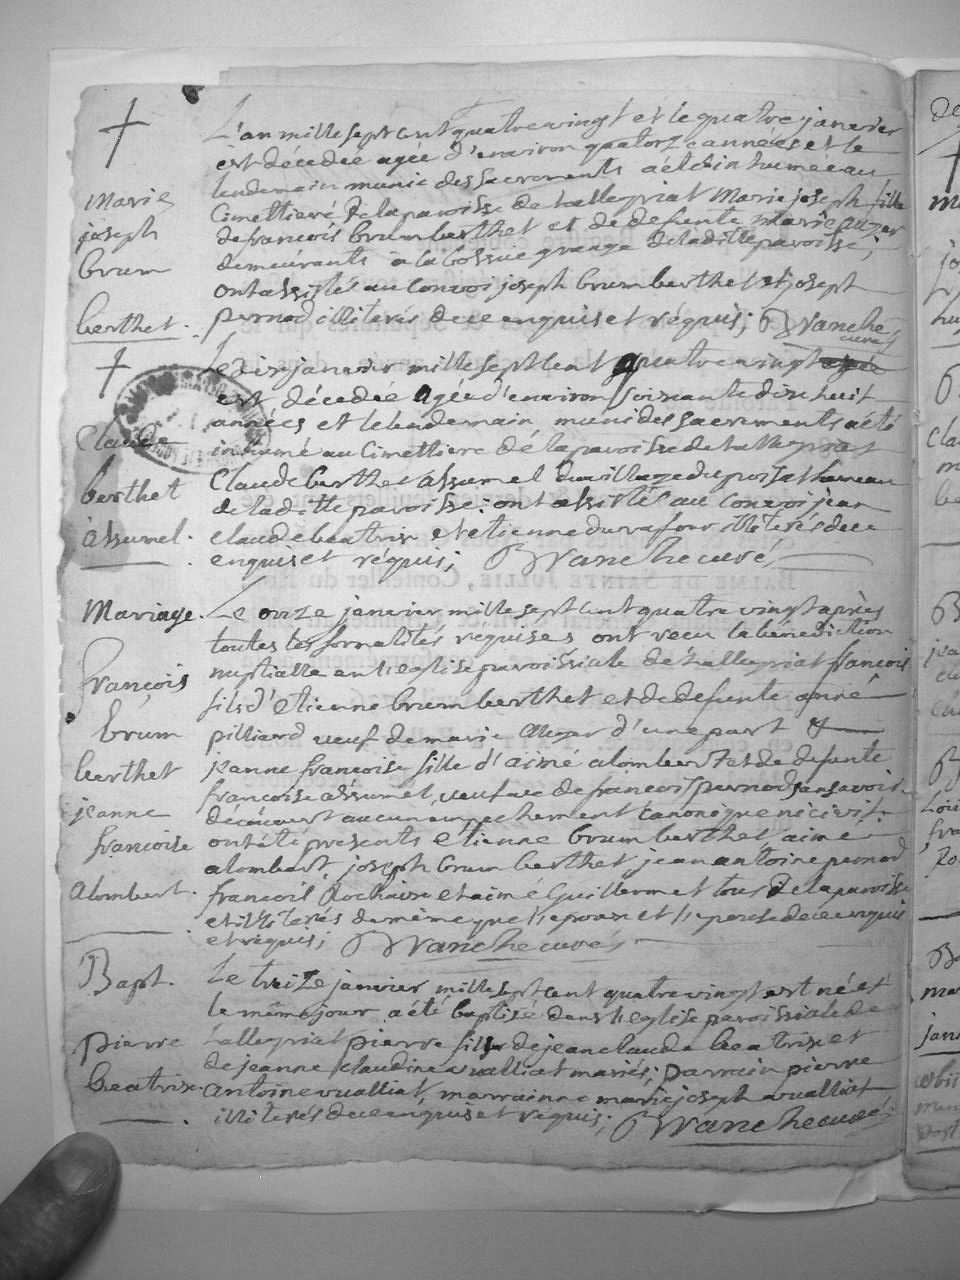 Marie
joseph
brum
berthet.
L'an mille sept cent quatre vingt et le quatre janvier
est décédée agée d'environ quatorze années et le
lendemain munie des sacrements a été inhumée au
cimettiere de la paroisse de tallegriat Marie joseph fille
de francois brum berthet et de defunte marie auger
demeurants a la bossue grange de la ditte paroisse;
ont assistés au convoi joseph brum berthet et joseph
pernod illiterés de ce enquis et réquis; Vranche
curé
Claude
berthet
assumel.
Le janvier mille sept cent quatre vingt
est décédé agée d'environ soixante dix huit
années et le lendemain, muni des sacrements a été
inhumé au cimettiere de la paroisse de tallegriat
Claude berthet assumel du village du poisat hameau
de la ditte paroisse: ont assistés au convoi jean
claude beatrix et etienne durafour illiterés de ce
enquis et réquis; Vranche curé
Mariage.
françois
brum
berthet
jeanne
françoise
alombert.
Le onze janvier mille sept cent quatre vingt après
toutes les formalités réquises ont reçu la bénédiction
nuptialle en l'eglise paroissiale de tallegriat françois
fils d'etienne brum berthet et de defunte anne
pilliard veuf de marie auger d'une part &
jeanne françoise fille d'aimé alombert et de defunte
françoise assumel, veufve de francois pernod sans avoir
decouvert aucun empechement canonique ni civil.
ont été présents etienne brum berthet, aimé
alombert, joseph brum berthet, jean antoine pernod
francois Rochaix et aimé Guillermet tous de la paroisse
et illiterés de même que l'epoux et l'epouse de ce enquis
et réquis; Vranche curé
Bapt.
pierre
beatrix.
Le treize janvier mille sept cent quatre vingt est né et
le même jour a été baptisé dans l'eglise paroissiale de
tallegriat pierre fils de jean claude beatrix et
de jeanne claudine vualliat mariés; parrain pierre
antoine vualliat, marrainne marie joseph vualliat
illiterés de ce enquis et réquis; Vranche curé